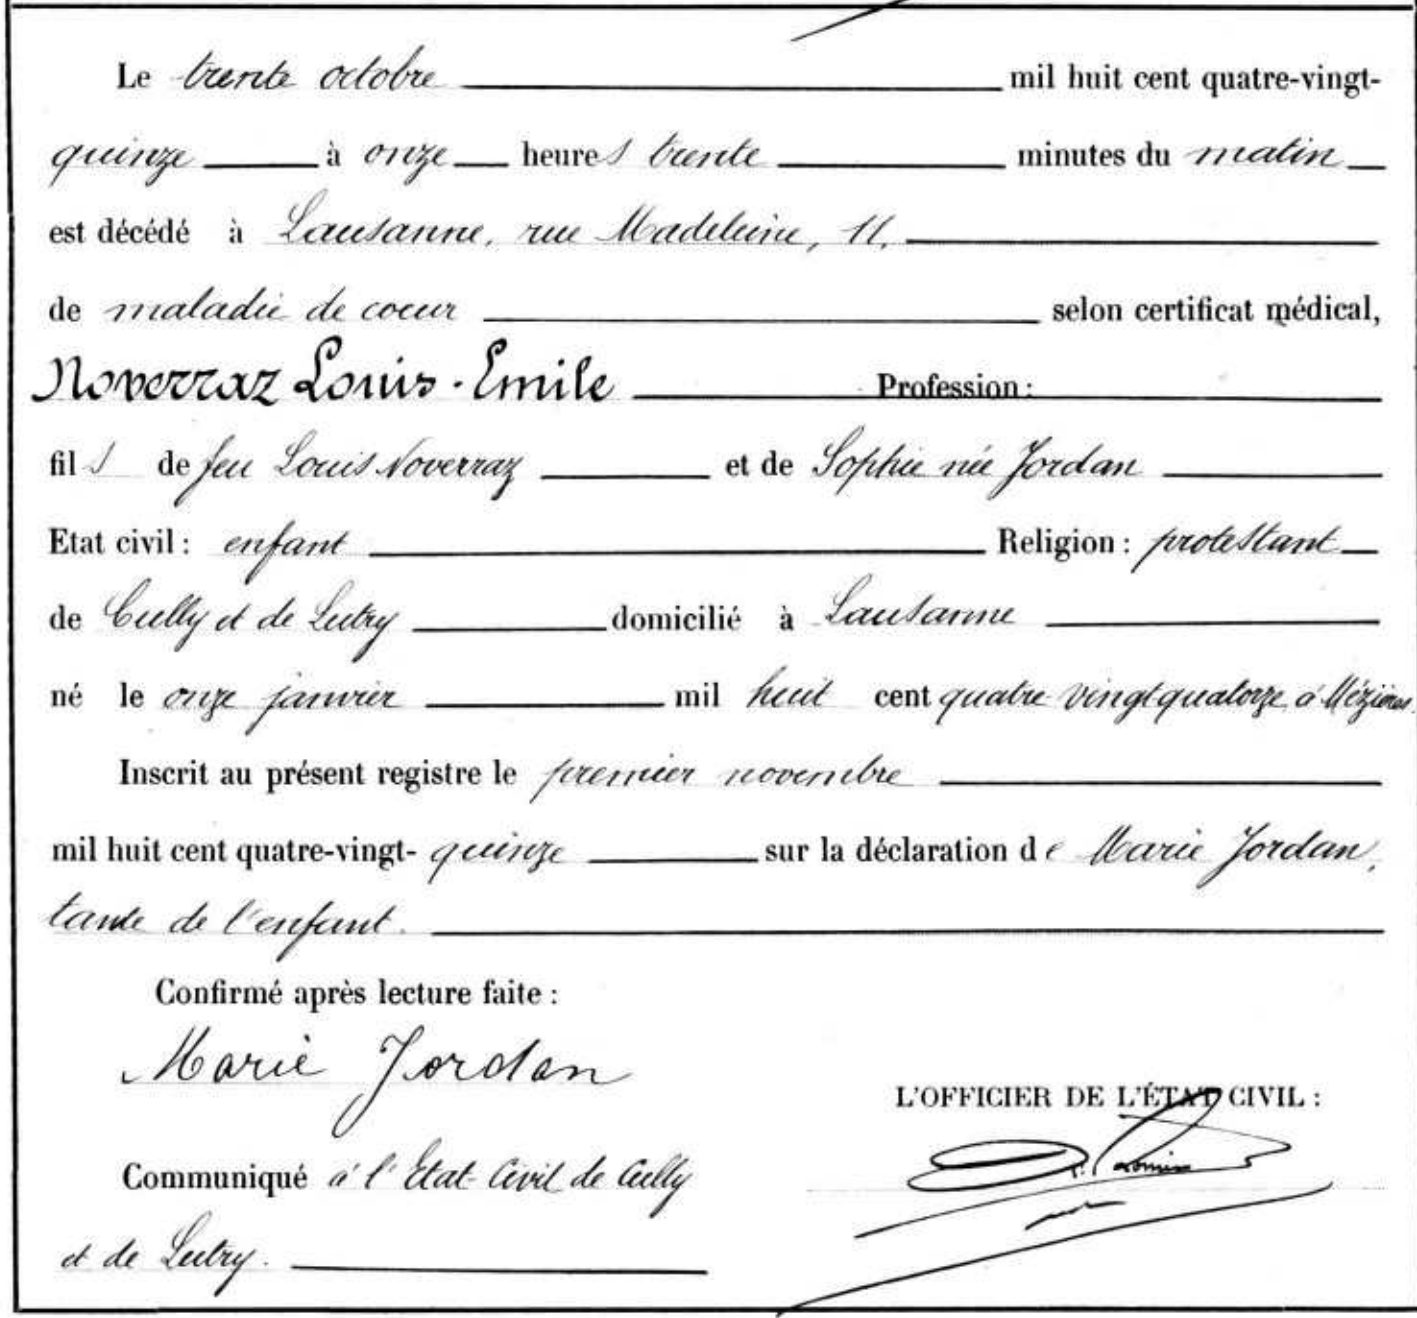 Le trente octobre mil huit cent quatre-vingt-
quinze à onze heures trente minutes du matin
est décédé à Lausanne, rue Madeleine, 11.
de maladie de coeur selon certificat médical,
Noverraz Louis-Emile Profession:
fils de feu Louis Noverraz et de Sophie née Jordan
Etat civil: enfant Religion: protestant
de Cully et de Lutry domicilié à Lausanne
né le onze janvier mil huit cent quatre vingt quatorze à Mézières.
Inscrit au présent registre le premier novembre
mil huit cent quatre-vingt-quinze sur la déclaration de Marie Jordan,
tante de l'enfant.
Confirmé après lecture faite:
Marie Jordan
L'OFFICIER DE L'ÉTAT CIVIL:
Communiqué à l'Etat-Civil de Cully
et de Lutry.